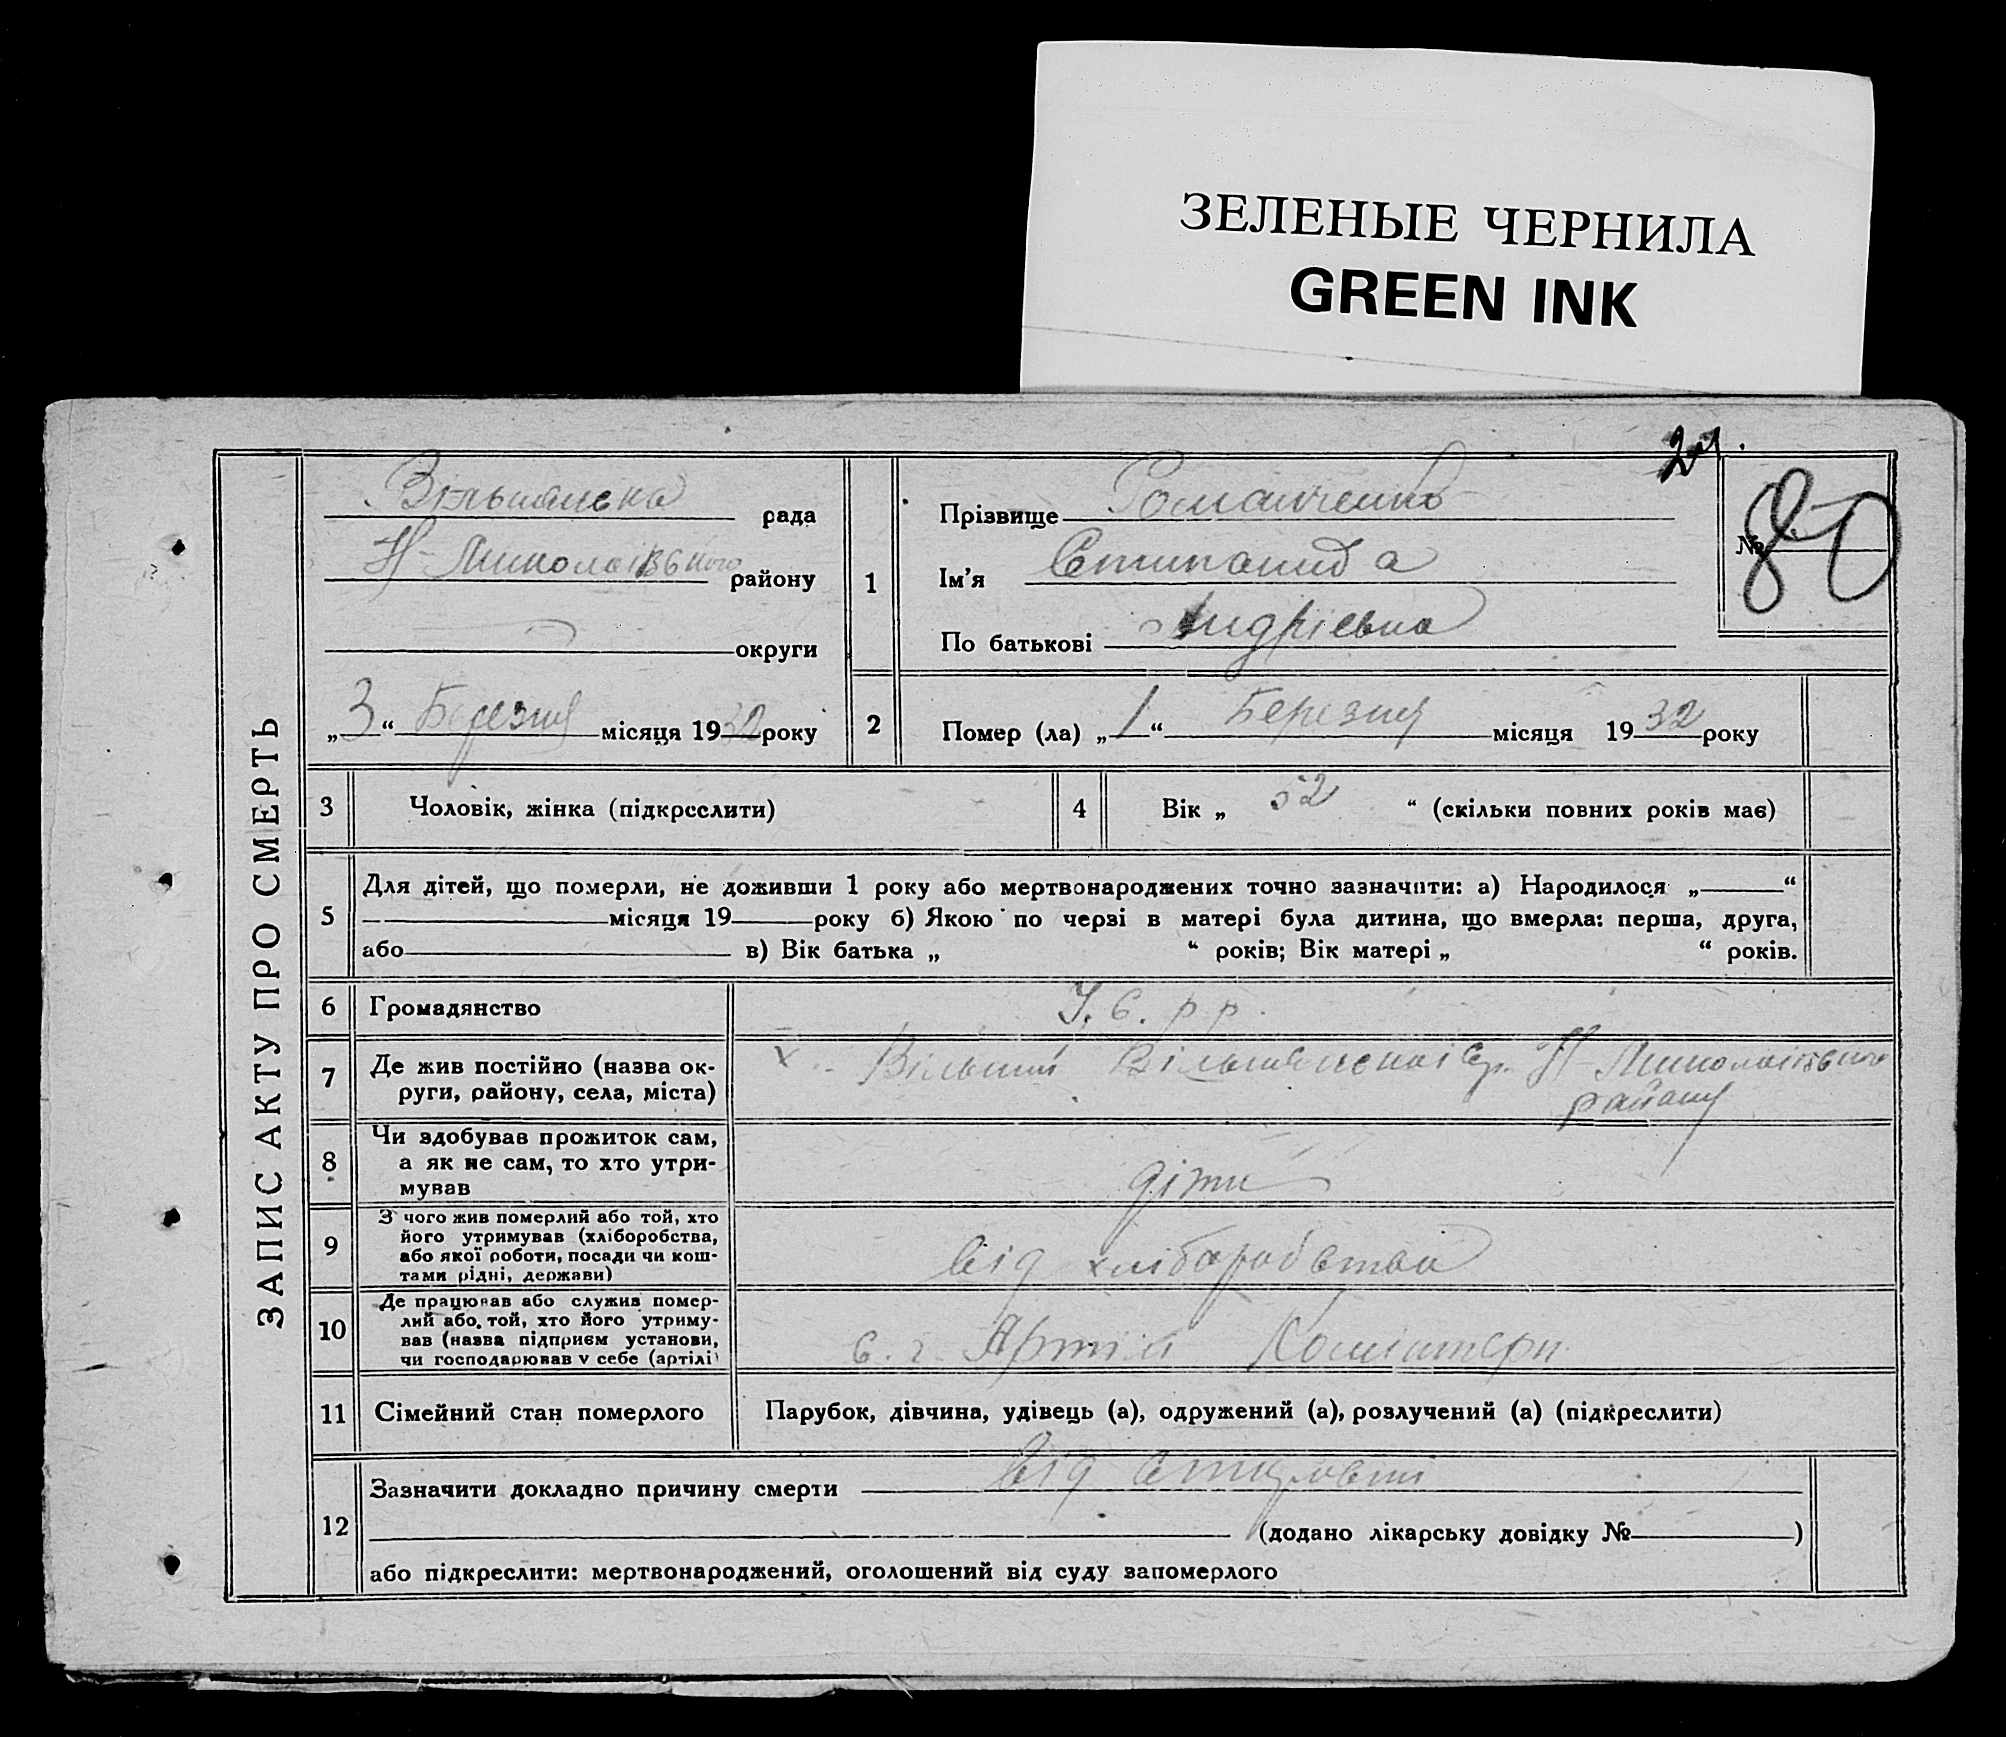 ЗЕЛЕНЫЕ ЧЕРНИЛА
GREEN INK
ЗАПИС АКТУ ПРО СМЕРТЬ
Вільнянська рада
Н-Миколаївського району
округи
„3“ Березня місяця 1932 року
1
Прізвище Романченко
Ім'я Степанида
По батькові Андрієвна
№ 80
2
Помер (ла) „1“ Березня місяця 1932 року
3 Чоловік, жінка (підкреслити)
4 Вік „ “ (скільки повних років має)
5
Для дітей, що померли, не доживши 1 року або мертвонароджених точно зазначити: а) Народилося „ “
місяця 19 року б) Якою по черзі в матері була дитина, що вмерла: перша, друга,
або в) Вік батька „ “ років; Вік матері „ “ років.
6 Громадянство У.С.р.р.
7 Де жив постійно (назва ок-
руги, району, села, міста)
х. Вільний Вільнянської с/р. Н-Миколаївського
району
8 Чи здобував прожиток сам,
а як не сам, то хто утри-
мував
діти
9 З чого жив померлий або той, хто
його утримував (хліборобства,
або якої роботи, посади чи кош-
тами рідні, держави)
від хліборобства
10 Де працював або служив помер-
лий або той, хто його утриму-
вав (назва підприєм установи,
чи господарював у себе (артілі)
с. г. Артіл Комінтерн
11 Сімейний стан померлого Парубок, дівчина, удівець (а), одружений (а), розлучений (а) (підкреслити)
12
Зазначити докладно причину смерти від старості
(додано лікарську довідку № )
або підкреслити: мертвонароджений, оголошений від суду запомерлого